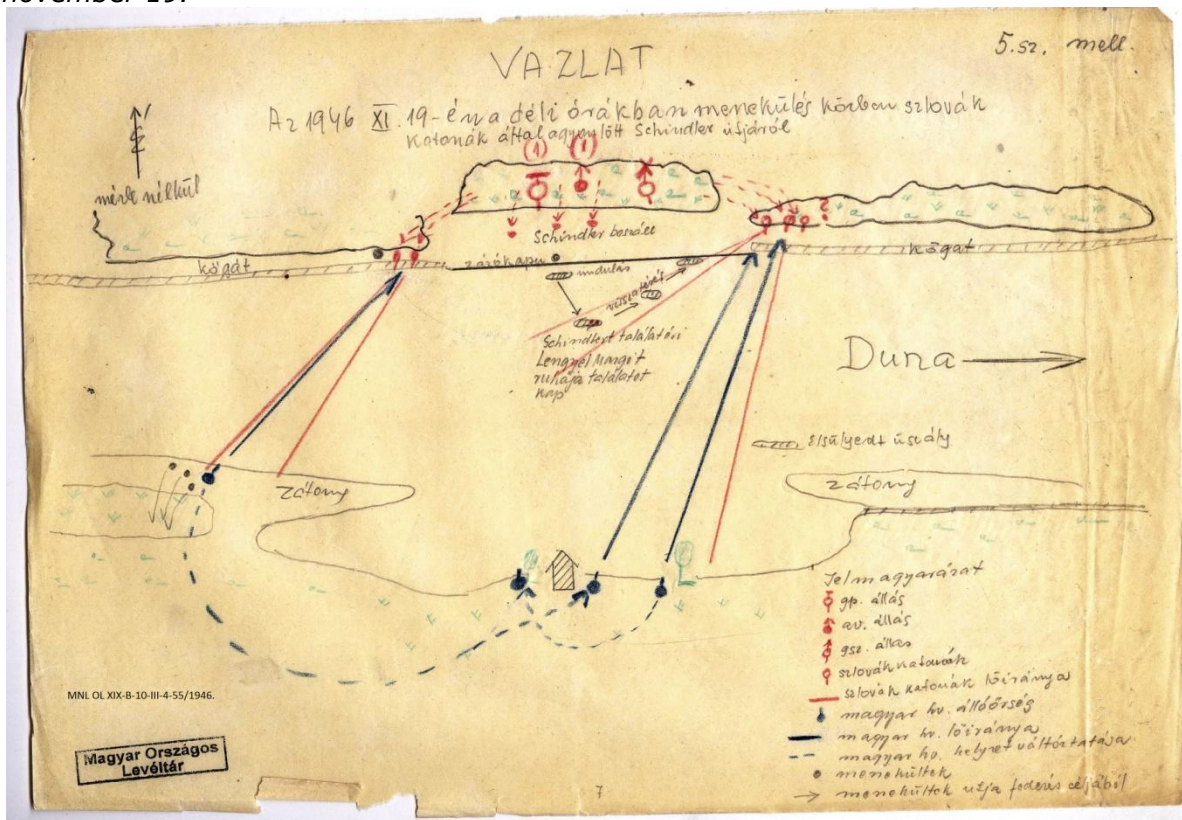 november 19.
5.sz. mell.
VAZLAT
Az 1946 XI. 19-én a déli órákban menekülés közben szlovák
katonák által agyonlőtt Schindler útjáról
mérték nélkül
(1) (1)
Schindler beszáll
kőgát
zárókapu
indulás
kőgát
visszatérés
Schindlert találat éri
Lengyel Margit
ruhája találatot
kap
Duna
Elsülyedt úszály
zátony
zátony
Jelmagyarázat
gp. állás
av. állás
gsz. állás
szlovák katonák
szlovák katonák lőiránya
magyar hv. állóőrség
magyar hv. lőiránya
magyar hv. helyzetváltoztatása
menekültek
menekültek útja fedezés céljából
MNL OL XIX-B-10-III-4-55/1946.
Magyar Országos
Levéltár
7